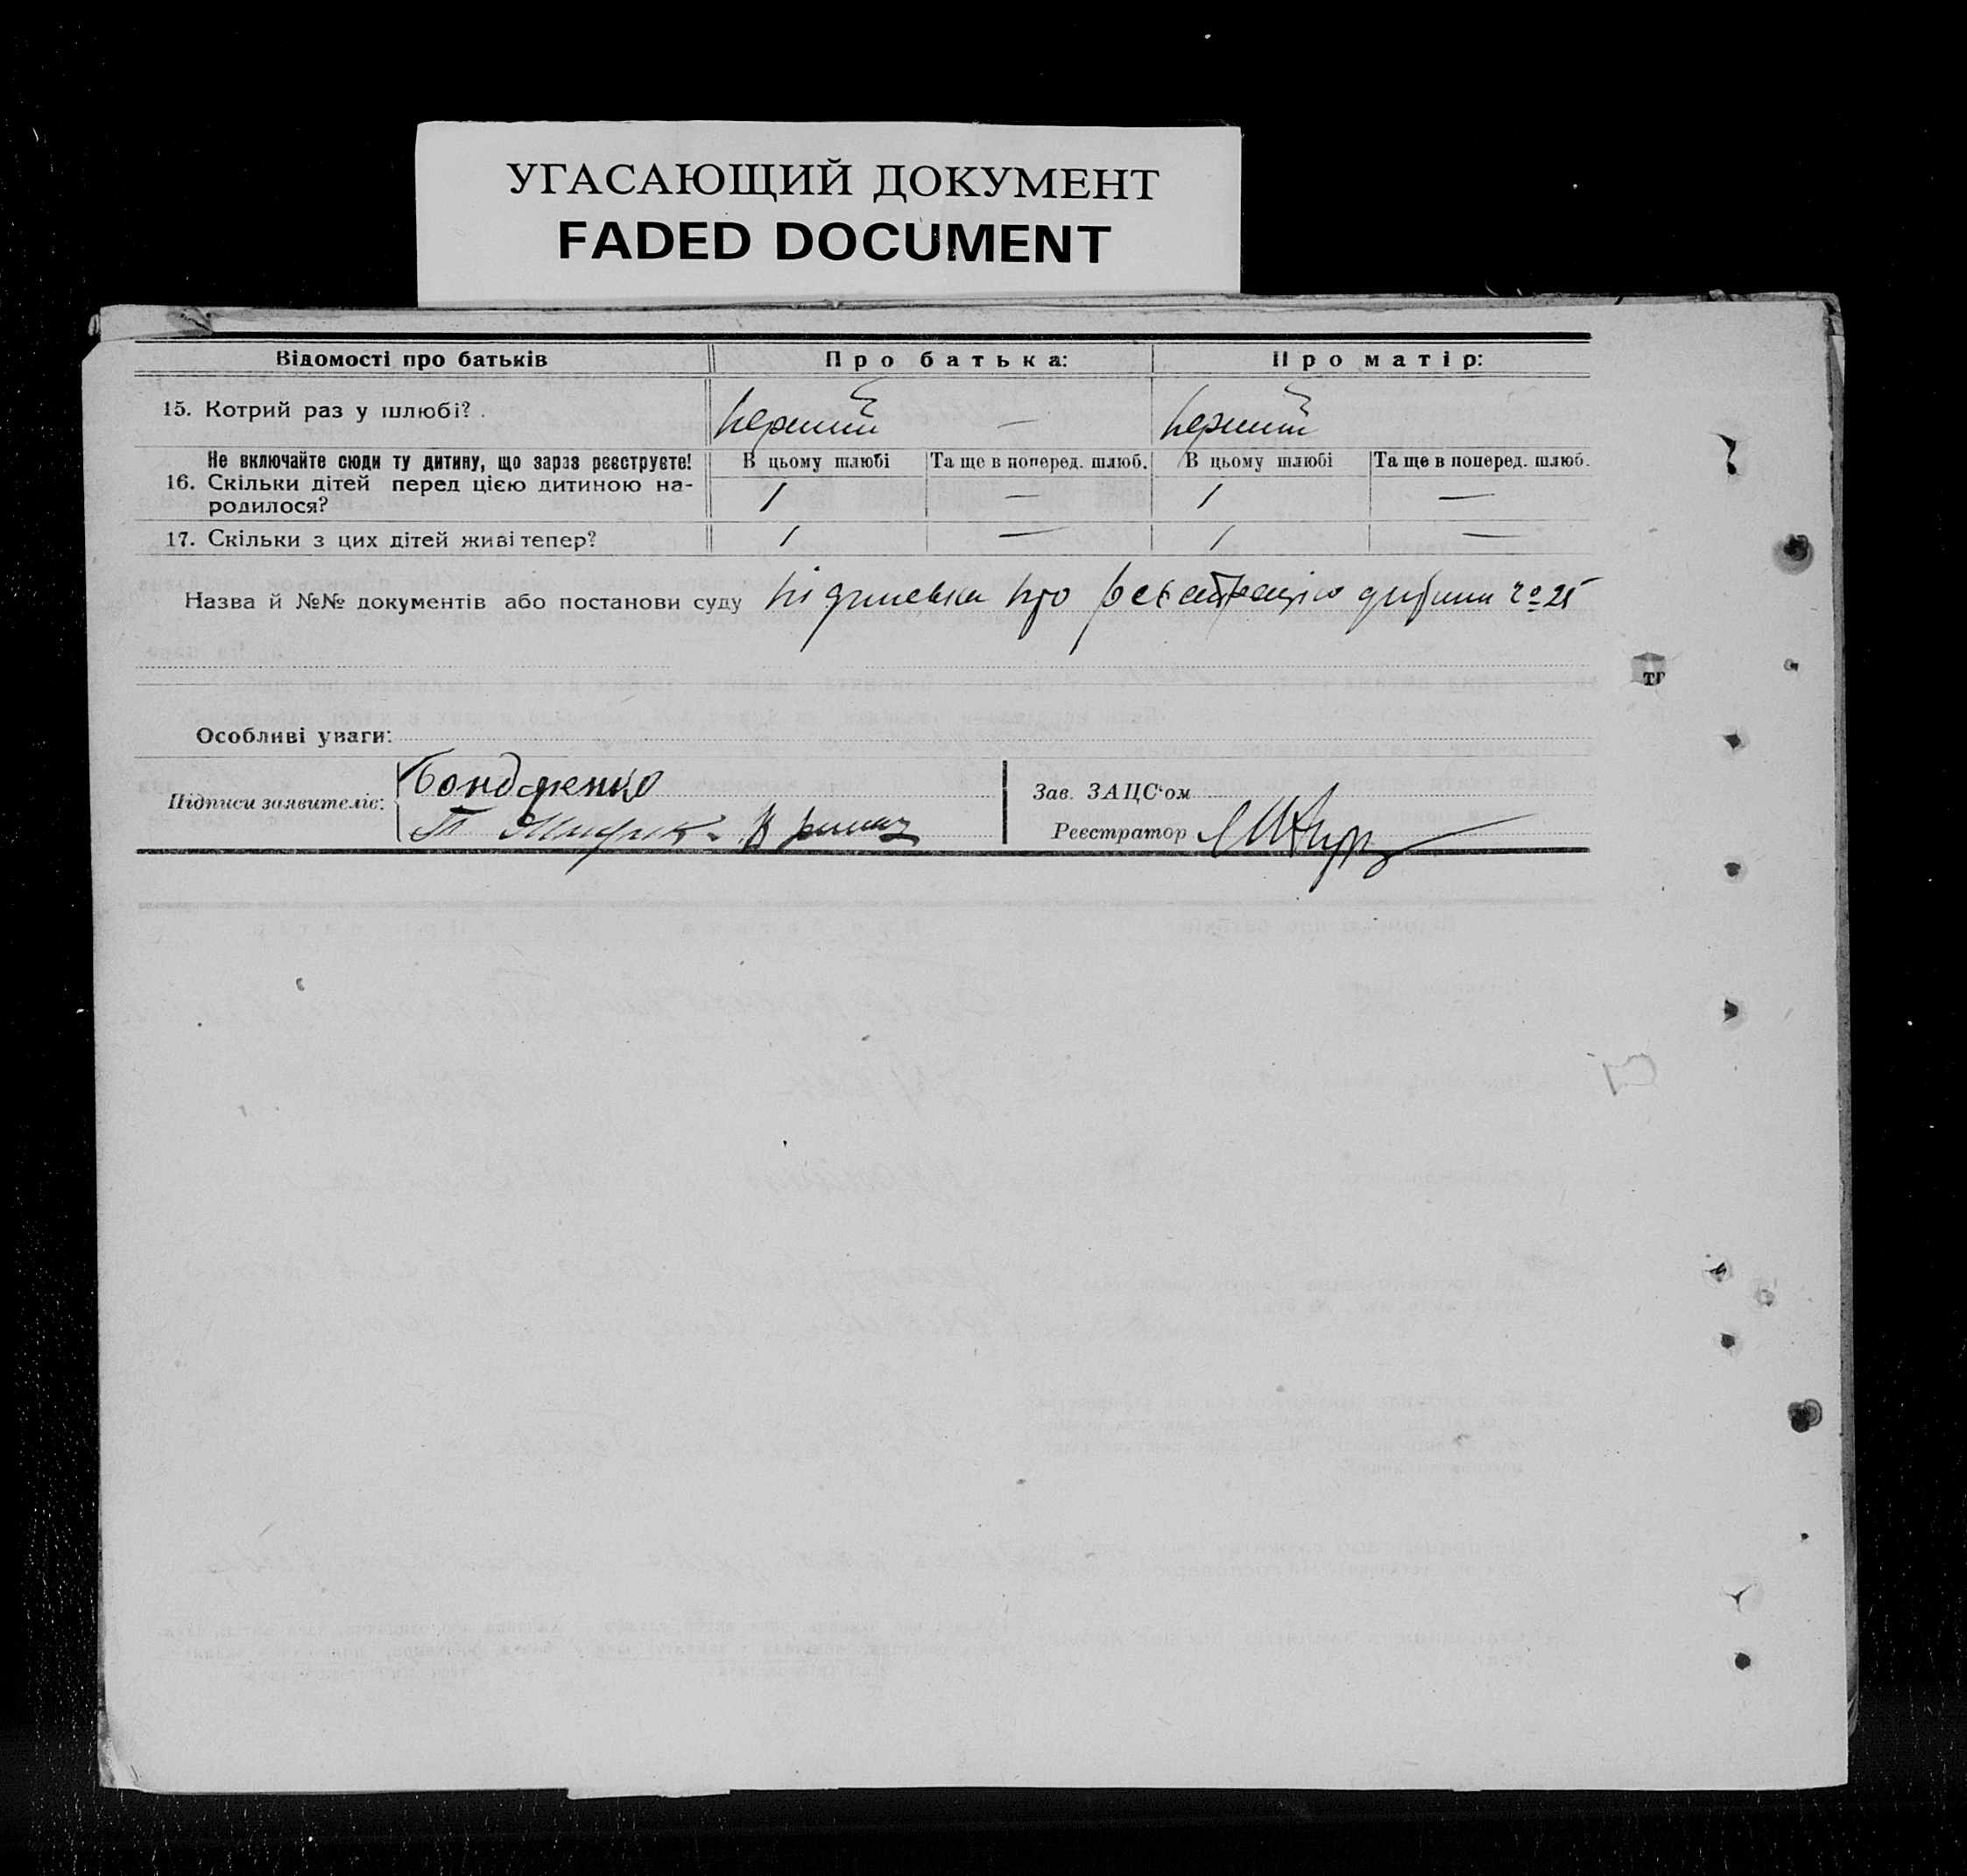 УГАСАЮЩИЙ ДОКУМЕНТ
FADED DOCUMENT
Відомості про батьків Про батька: Про матір:
15. Котрий раз у шлюбі? . перший — перший
Не включайте сюди ту дитину, що зараз реєструєте! В цьому шлюбі Та ще в поперед. шлюб. В цьому шлюбі Та ще в поперед. шлюб.
16. Скільки дітей перед цією дитиною на-
родилося? 1 — 1 —
17. Скільки з цих дітей живі тепер? 1 — 1 —
Назва й №№ документів або постанови суду про
Особливі уваги:
Підписи заявителів: Бондаренко
Зав. ЗАЦС‘ом
Реєстратор
тг